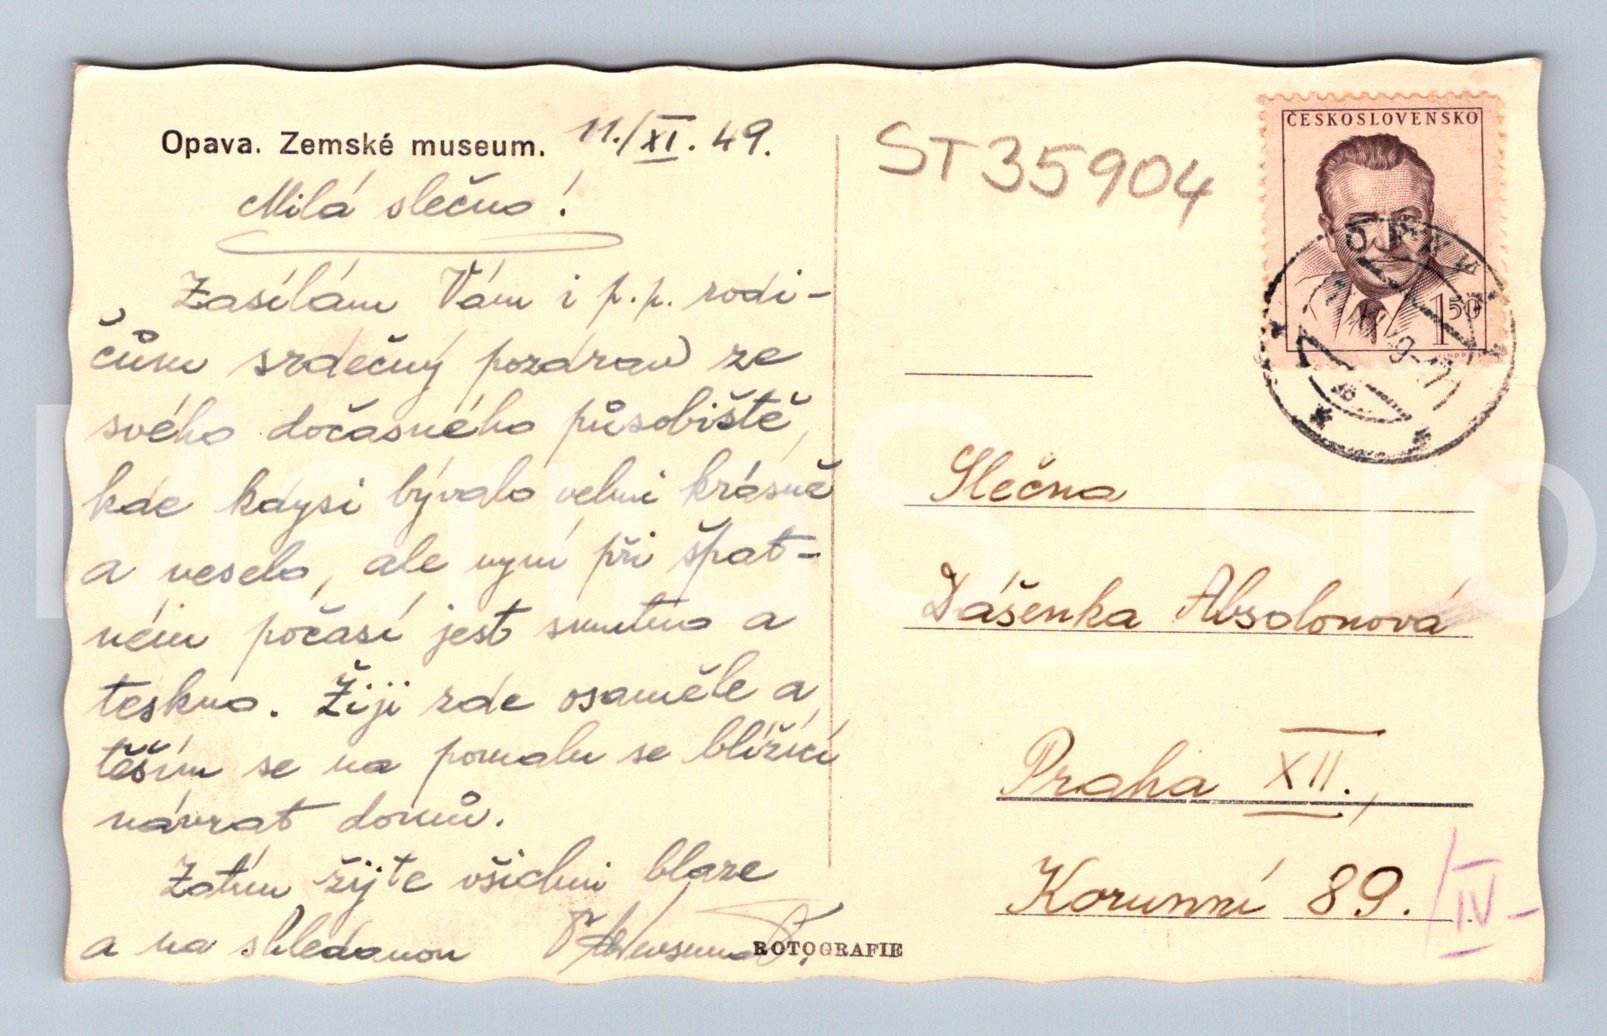 Opava. Zemské museum. 11./XI. 49.
Milá slečno!
Zasílám Vám i p.p. rodi-
čům srdečný pozdrav ze
svého dočasného působiště,
kde kdysi bývalo velmi krásně
a veselo, ale nyní při špat-
ném počasí jest smutno a
teskno. Žiji zde osaměle a
těším se na pomalu se blížící
návrat domů.
Zatím žijte všichni blaze
a na shledanou
ROTOGRAFIE
ST35904
ČESKOSLOVENSKO
1 50
OPAVA
Slečna
Dášenka Absolonová
Praha XII.,
Korunní 89. /IV-